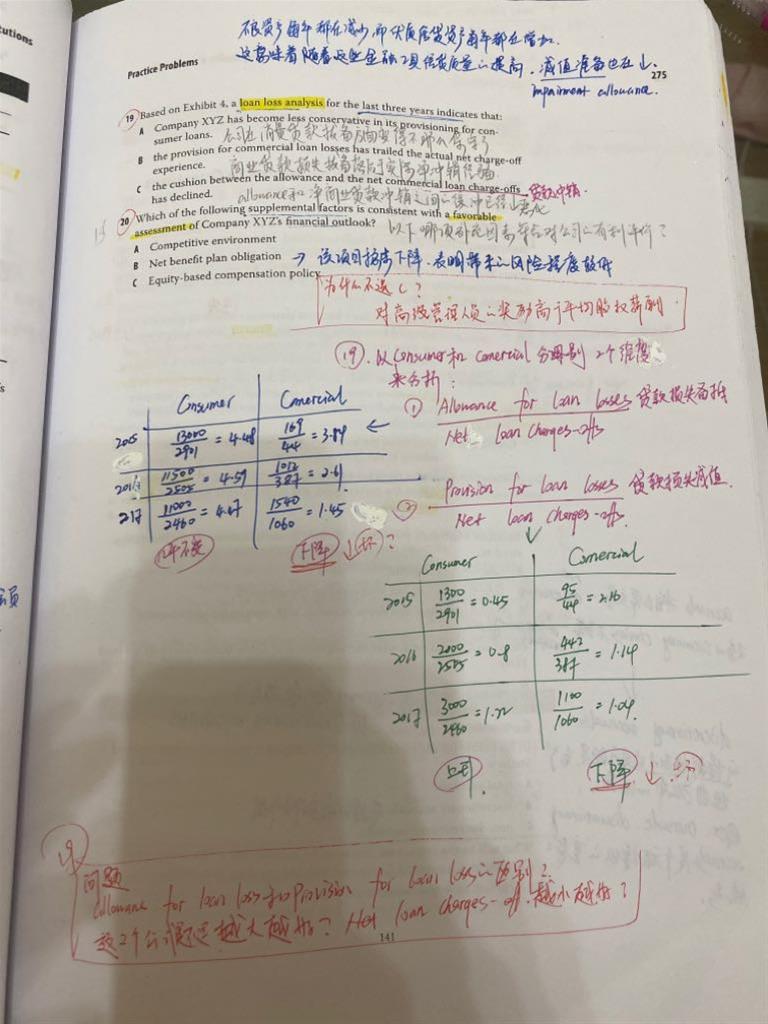 不良资产每年都在减少,而优质信贷资产每年都在增加.
这意味着随着这些金融工具信贷质量的提高,减值准备也在↓.
impairment allowance.
Practice Problems
275
19 Based on Exhibit 4, a loan loss analysis for the last three years indicates that:
A Company XYZ has become less conservative in its provisioning for con-
sumer loans. 公司在消费贷款拨备方面变得不那么保守了
B the provision for commercial loan losses has trailed the actual net charge-off
experience. 商业贷款损失拨备落后实际净冲销经验
C the cushion between the allowance and the net commercial loan charge-offs 贷款冲销.
has declined. allowance和净商业贷款冲销之间的缓冲已经
20 Which of the following supplemental factors is consistent with a favorable
assessment of Company XYZ's financial outlook? 以下哪项补充因素符合对公司的有利评价?
A Competitive environment
B Net benefit plan obligation → 该项目持续下降.表明带来的风险程度较低
C Equity-based compensation policy
为什么不选C?
对高级管理人员的奖励高于平均股权薪酬
19. 以Consumer和comercial 分别 2个维度
来分析:
① Allowance for loan losses 贷款损失备抵
Net loan charges-offs
Consumer Comercial
2015 13000/2901 = 4.48 169/44 = 3.84 ←
2016 11500/2505 = 4.59 1012/387 = 2.61
217 11000/2460 = 4.47 1540/1060 = 1.45
几乎不变 下降 ↓(坏)?
② Provision for loan losses 贷款损失减值.
Net loan charges-offs.
↓
Consumer Comercial
2015 1300/2901 = 0.45 95/44 = 2.16
2016 2000/2505 = 0.8 442/387 = 1.14
2017 3000/2460 = 1.22 1100/1060 = 1.04.
上升. 下降 ↓.坏
19
问题
allowance for loan loss和Provision for loan loss的区别?
这2个公式是越大越好? Net loan charges-off.越小越好?
141